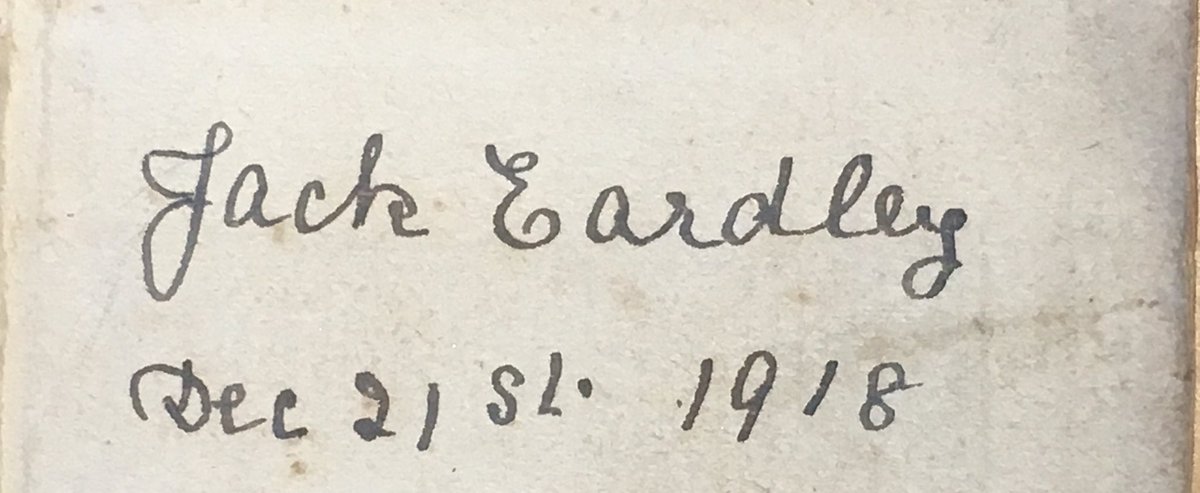 Jack Eardley
Dec 21 st. 1918